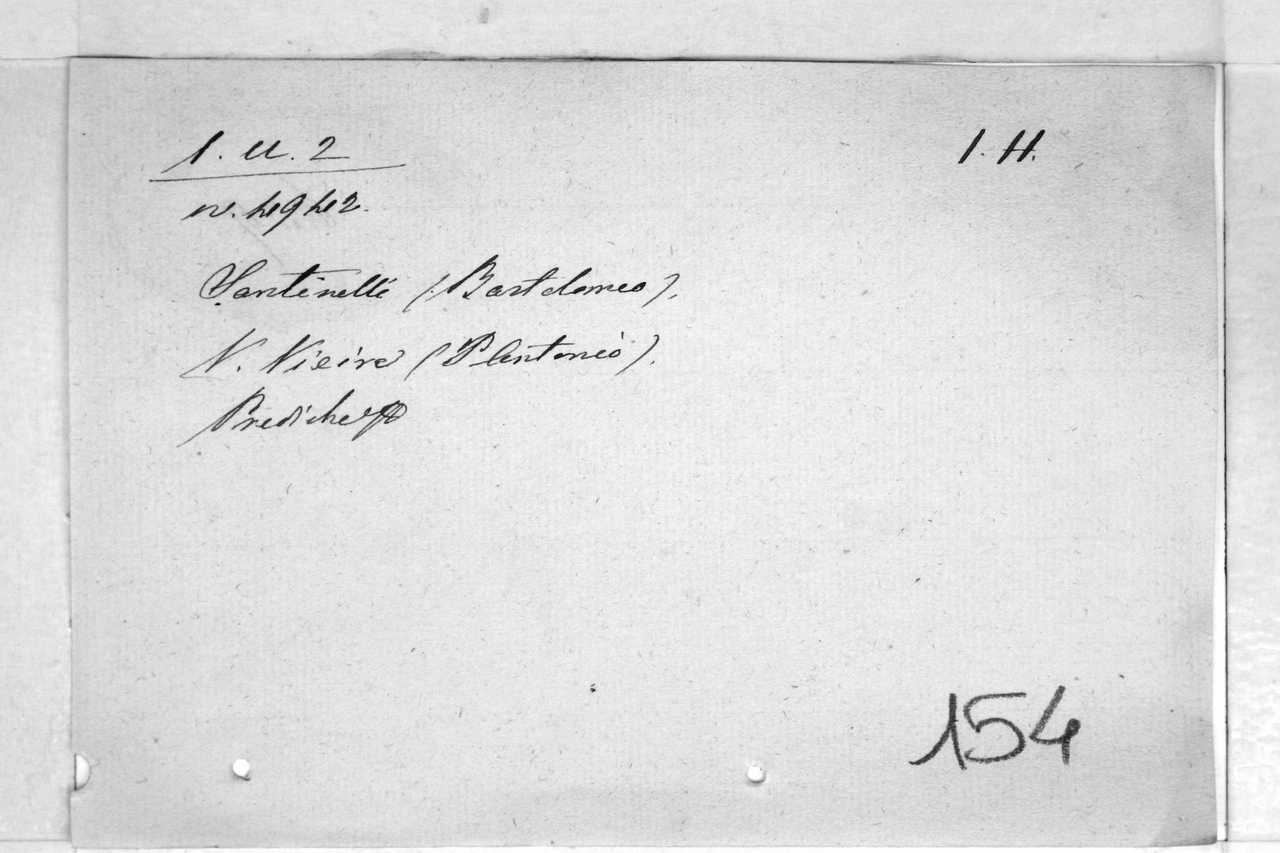 1. u. 2
I. H.
n. 4942.
Santinelli (Bartolomeo).
V. Vieira (P. Antonio).
Prediche
154